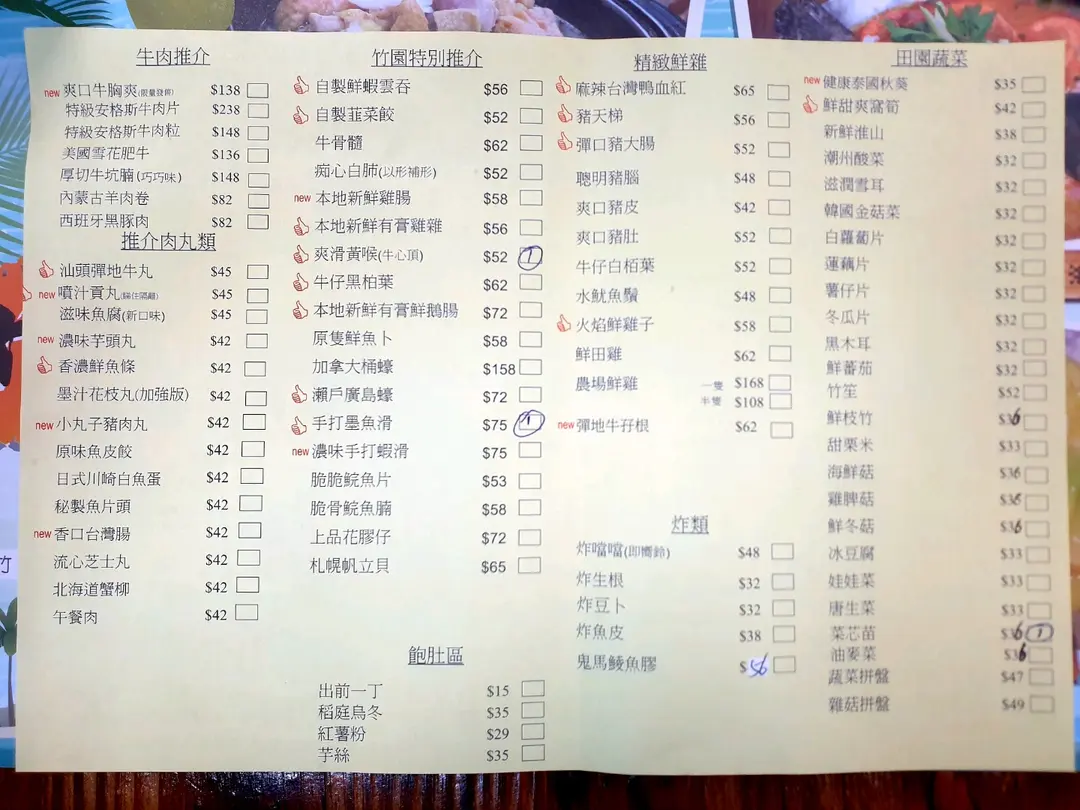 牛肉推介
new 爽口牛胸爽(限量發售) $138
特級安格斯牛肉片 $238
特級安格斯牛肉粒 $148
美國雪花肥牛 $136
厚切牛坑腩(巧巧味) $148
內蒙古羊肉卷 $82
西班牙黑豚肉 $82
推介肉丸類
汕頭彈地牛丸 $45
new 噴汁貢丸 $45
滋味魚腐(新口味) $45
new 濃味芋頭丸 $42
香濃鮮魚條 $42
墨汁花枝丸(加強版) $42
new 小丸子豬肉丸 $42
原味魚皮餃 $42
日式川崎白魚蛋 $42
秘製魚片頭 $42
new 香口台灣腸 $42
流心芝士丸 $42
北海道蟹柳 $42
午餐肉 $42
竹園特別推介
自製鮮蝦雲吞 $56
自製韮菜餃 $52
牛骨髓 $62
痴心白肺(以形補形) $52
new 本地新鮮雞腸 $58
本地新鮮有膏雞雜 $56
爽滑黃喉(牛心頂) $52 1
牛仔黑柏葉 $62
本地新鮮有膏鮮鵝腸 $72
原隻鮮魚卜 $58
加拿大桶蠔 $158
瀨戶廣島蠔 $72
手打墨魚滑 $75 1
new 濃味手打蝦滑 $75
脆脆鯇魚片 $53
脆骨鯇魚腩 $58
上品花膠仔 $72
札幌帆立貝 $65
飽肚區
出前一丁 $15
稻庭烏冬 $35
紅薯粉 $29
芋絲 $35
精緻鮮雞
麻辣台灣鴨血紅 $65
豬天梯 $56
彈口豬大腸 $52
聰明豬腦 $48
爽口豬皮 $42
爽口豬肚 $52
牛仔白栢葉 $52
水魷魚鬚 $48
火焰鮮雞子 $58
鮮田雞 $62
農場鮮雞 一隻 $168
半隻 $108
new 彈地牛孖根 $62
炸類
炸噹噹(即嚮鈴) $48
炸生根 $32
炸豆卜 $32
炸魚皮 $38
鬼馬鯪魚膠 $56
田園蔬菜
new 健康泰國秋葵 $35
鮮甜爽窩筍 $42
新鮮淮山 $38
潮州酸菜 $32
滋潤雪耳 $32
韓國金菇菜 $32
白蘿蔔片 $32
蓮藕片 $32
薯仔片 $32
冬瓜片 $32
黑木耳 $32
鮮蕃茄 $32
竹笙 $52
鮮枝竹 $36
甜栗米 $33
海鮮菇 $36
雞脾菇 $36
鮮冬菇 $36
冰豆腐 $33
娃娃菜 $33
唐生菜 $33
菜芯苗 $36 1
油麥菜 $36
蔬菜拼盤 $47
雜菇拼盤 $49
竹